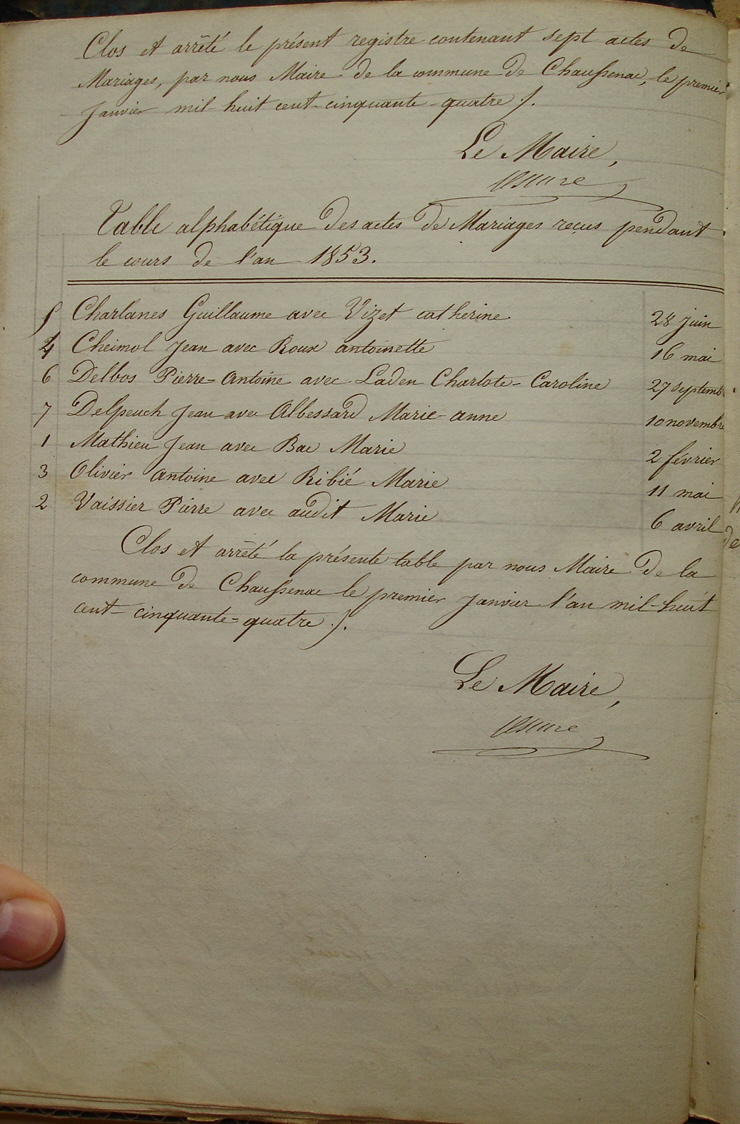 Clos et arrêté le présent registre contenant sept actes de
Mariages, par nous Maire de la commune de Chaussenac, le premier
Janvier mil huit cent cinquante-quatre /.
Le Maire,
Table alphabétique des actes de Mariages reçus pendant
le cours de l'an 1853.
5 Charlanes Guillaume avec Vizet catherine 28 juin
4 Cheimol Jean avec Roux antoinette 16 mai
6 Delbos Pierre-Antoine avec Laden Charlote-Caroline 27 septembre
7 Delpeuch Jean avec Albessard Marie-anne 10 novembre
1 Mathieu Jean avec Bac Marie 2 février
3 Olivier Antoine avec Ribié Marie 11 mai
2 Vaissier Pierre avec audit Marie 6 avril
Clos et arrêté la présente table par nous Maire de la
commune de Chaussenac le premier Janvier l'an mil-huit
cent-cinquante=quatre /.
Le Maire,